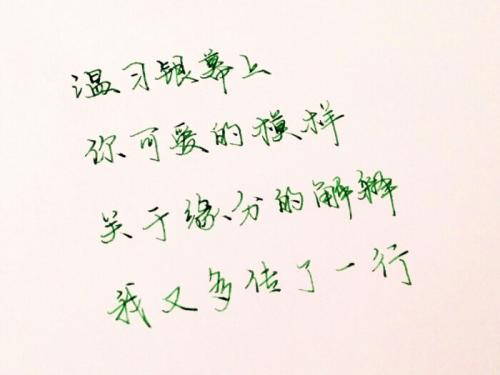 温习银幕上
你可爱的模样
关于缘分的解释
我又多传了一行